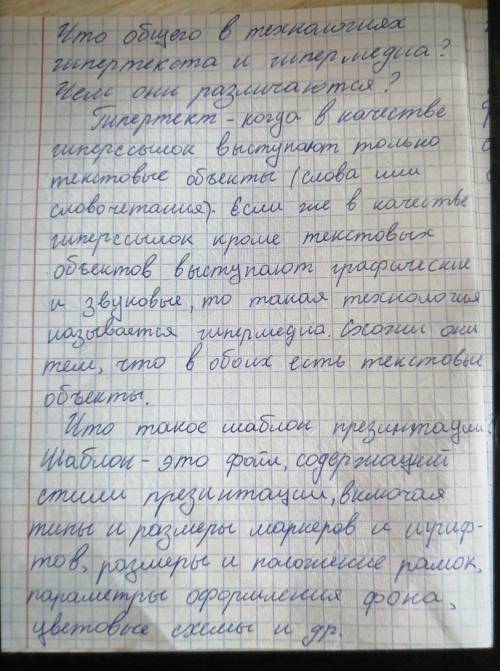 Что общего в технологиях
гипертекста и гипермедиа?
Чем они различаются?
Гипертект - когда в качестве
гиперссылок выступают только
текстовые объекты (слова или
словочетания). Если же в качестве
гиперссылок кроме текстовых
объектов выступают графические
и звуковые, то такая технология
называется гипермедиа. Схожи они
тем, что в обоих есть текстовые
объекты.
Что такое шаблон презинтации?
Шаблон - это файл, содержащий
стили презинтации, включая
типы и размеры маркеров и шриф-
тов, размеры и положение рамок,
параметры оформления фона,
цветовые схемы и др.